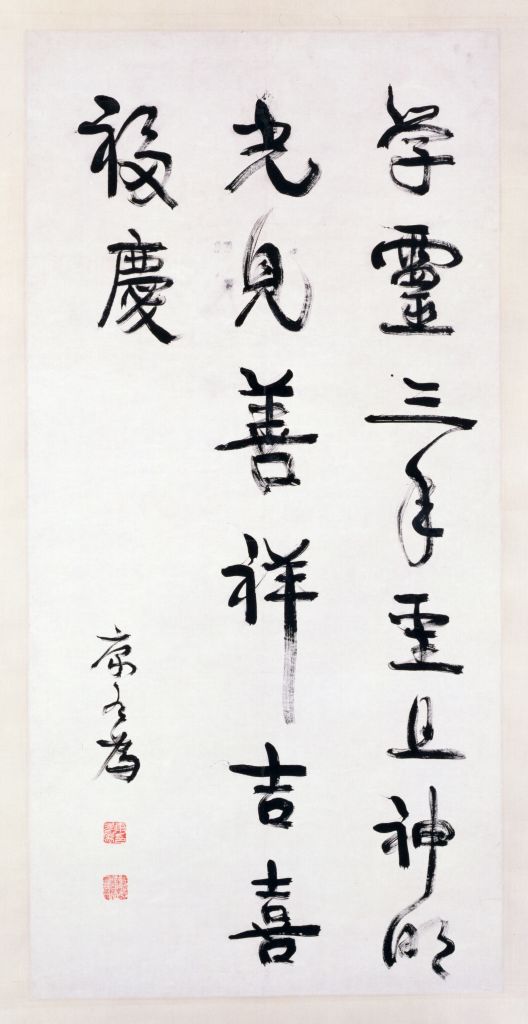 學靈三年聖且神明
光見善祥吉喜
福慶
康有為